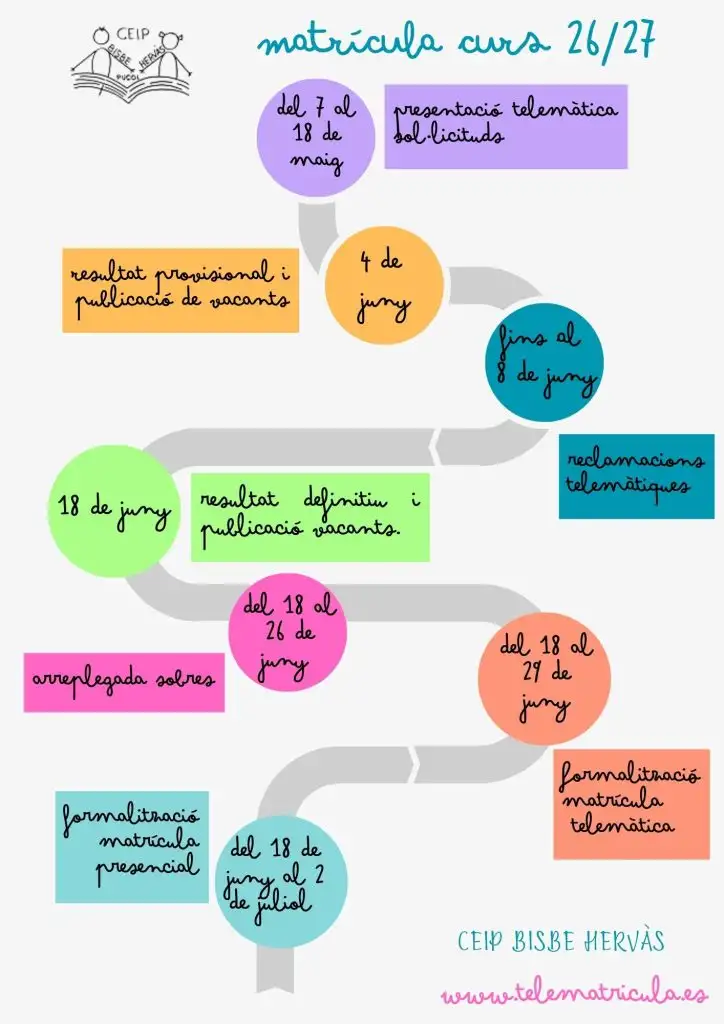 CEIP
BISBE HERVÀS
PUÇOL
matrícula curs 26/27
del 7 al
18 de
maig
presentació telemàtica
sol·licituds
4 de
juny
resultat provisional i
publicació de vacants
fins al
8 de juny
reclamacions
telemàtiques
18 de juny
resultat definitiu i
publicació vacants.
del 18 al
26 de
juny
arreplegada sobres
del 18 al
29 de
juny
formalització
matrícula
telemàtica
formalització
matrícula
presencial
del 18 de
juny al 2
de juliol
CEIP BISBE HERVÀS
www.telematricula.es